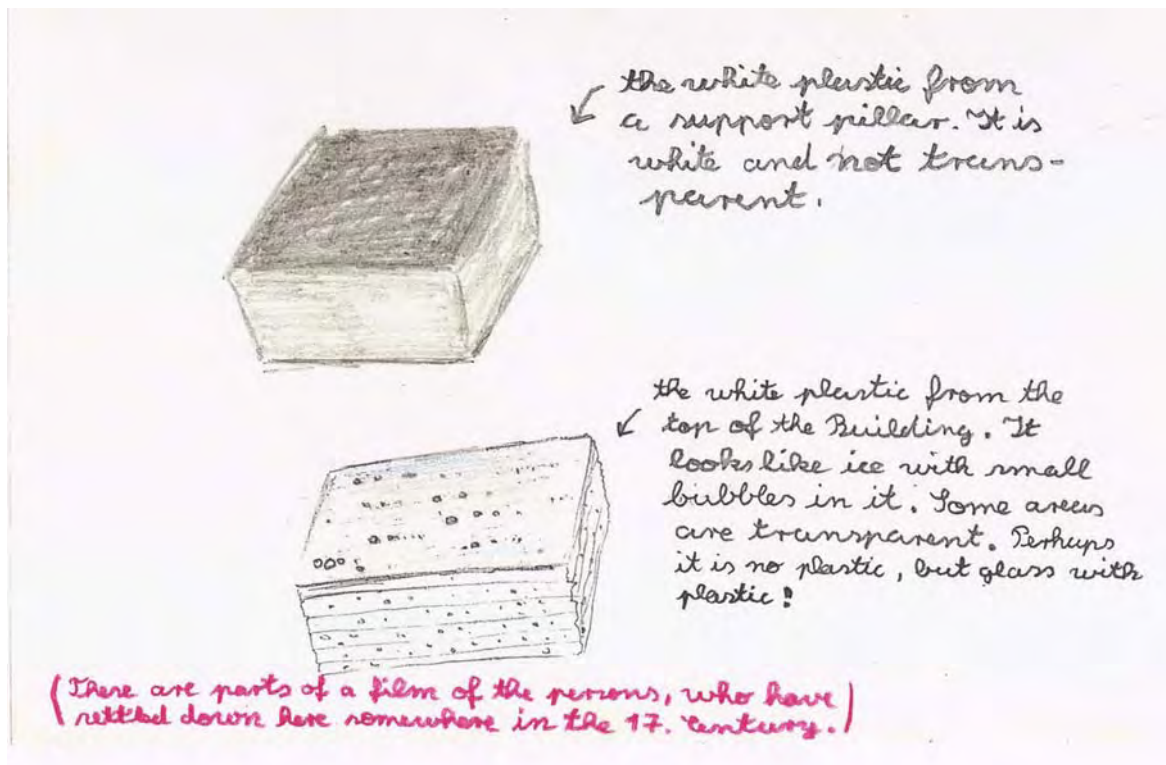 the white plastic from
a support pillar. It is
white and not trans-
parent.
the white plastic from the
top of the Building. It
looks like ice with small
bubbles in it. Some areas
are transparent. Perhaps
it is no plastic, but glass with
plastic!
(There are parts of a film of the persons, who have
settled down here somewhere in the 17. Century.)